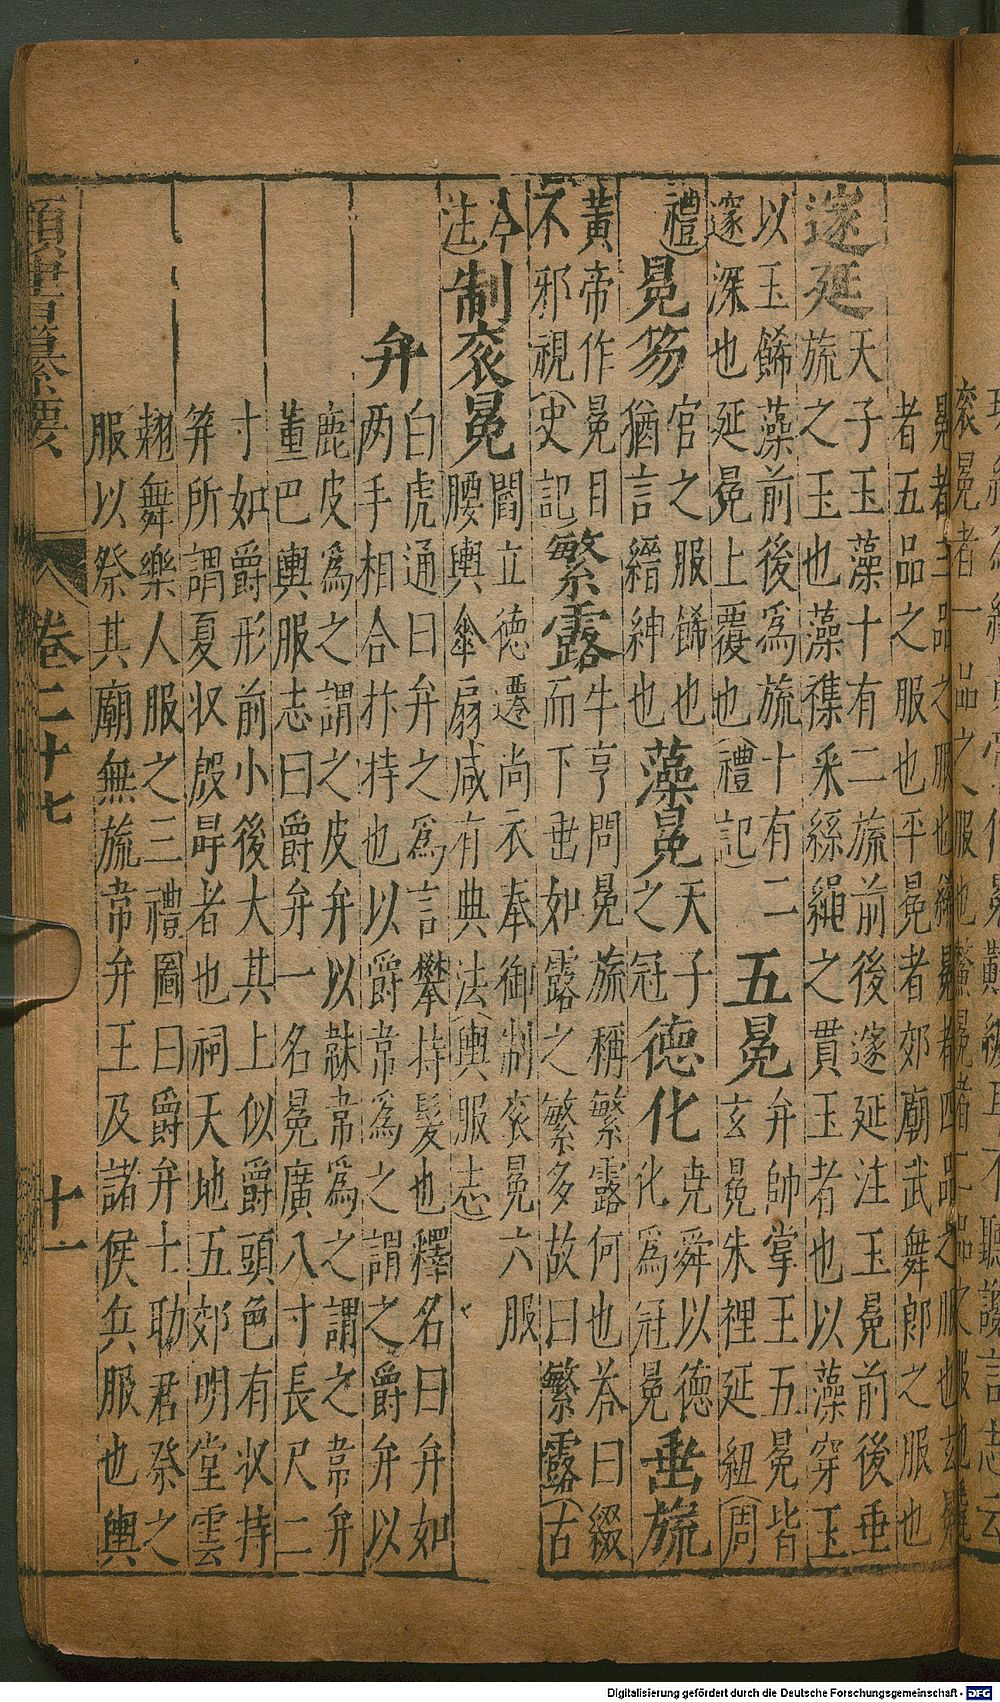 冕者三品之服也絺冕者四品之服也玄冕
者五品之服也平冕者郊廟武舞郎之服也
邃延
天子玉藻十有二旒前後邃延注玉冕前後垂
旒之玉也藻襍采絲繩之貫玉者也以藻穿玉
以玉餙藻前後爲旒十有二
邃深也延冕上覆也(禮記)
五冕
弁帥掌王五冕皆
玄冕朱裡延紐(周
禮)
冕笏
官之服餙也
猶言縉紳也
藻冕
天子
之冠
德化
堯舜以德
化爲冠冕
垂旒
黃帝作冕目
不邪視(史記)
繁露
牛亨問冕旒稱繁露何也荅曰綴
而下垂如露之繁多故曰繁露(古
今
注)
制衮冕
閻立德遷尚衣奉御制衮冕六服
腰輿傘扇咸有典法(輿服志)
弁
白虎通曰弁之爲言攀持髮也釋名曰弁如
两手相合抃持也以爵韋爲之謂之爵弁以
鹿皮爲之謂之皮弁以韎韋爲之謂之韋弁
董巴輿服志曰爵弁一名冕廣八寸長尺二
寸如爵形前小後大其上似爵頭色有收持
笄所謂夏收殷冔者也祠天地五郊明堂雲
翹舞樂人服之三禮圖曰爵弁士助君祭之
服以祭其廟無旒韋弁王及諸侯兵服也輿
類書纂要
卷二十七
十一
Digitalisierung gefördert durch die Deutsche Forschungsgemeinschaft - DFG